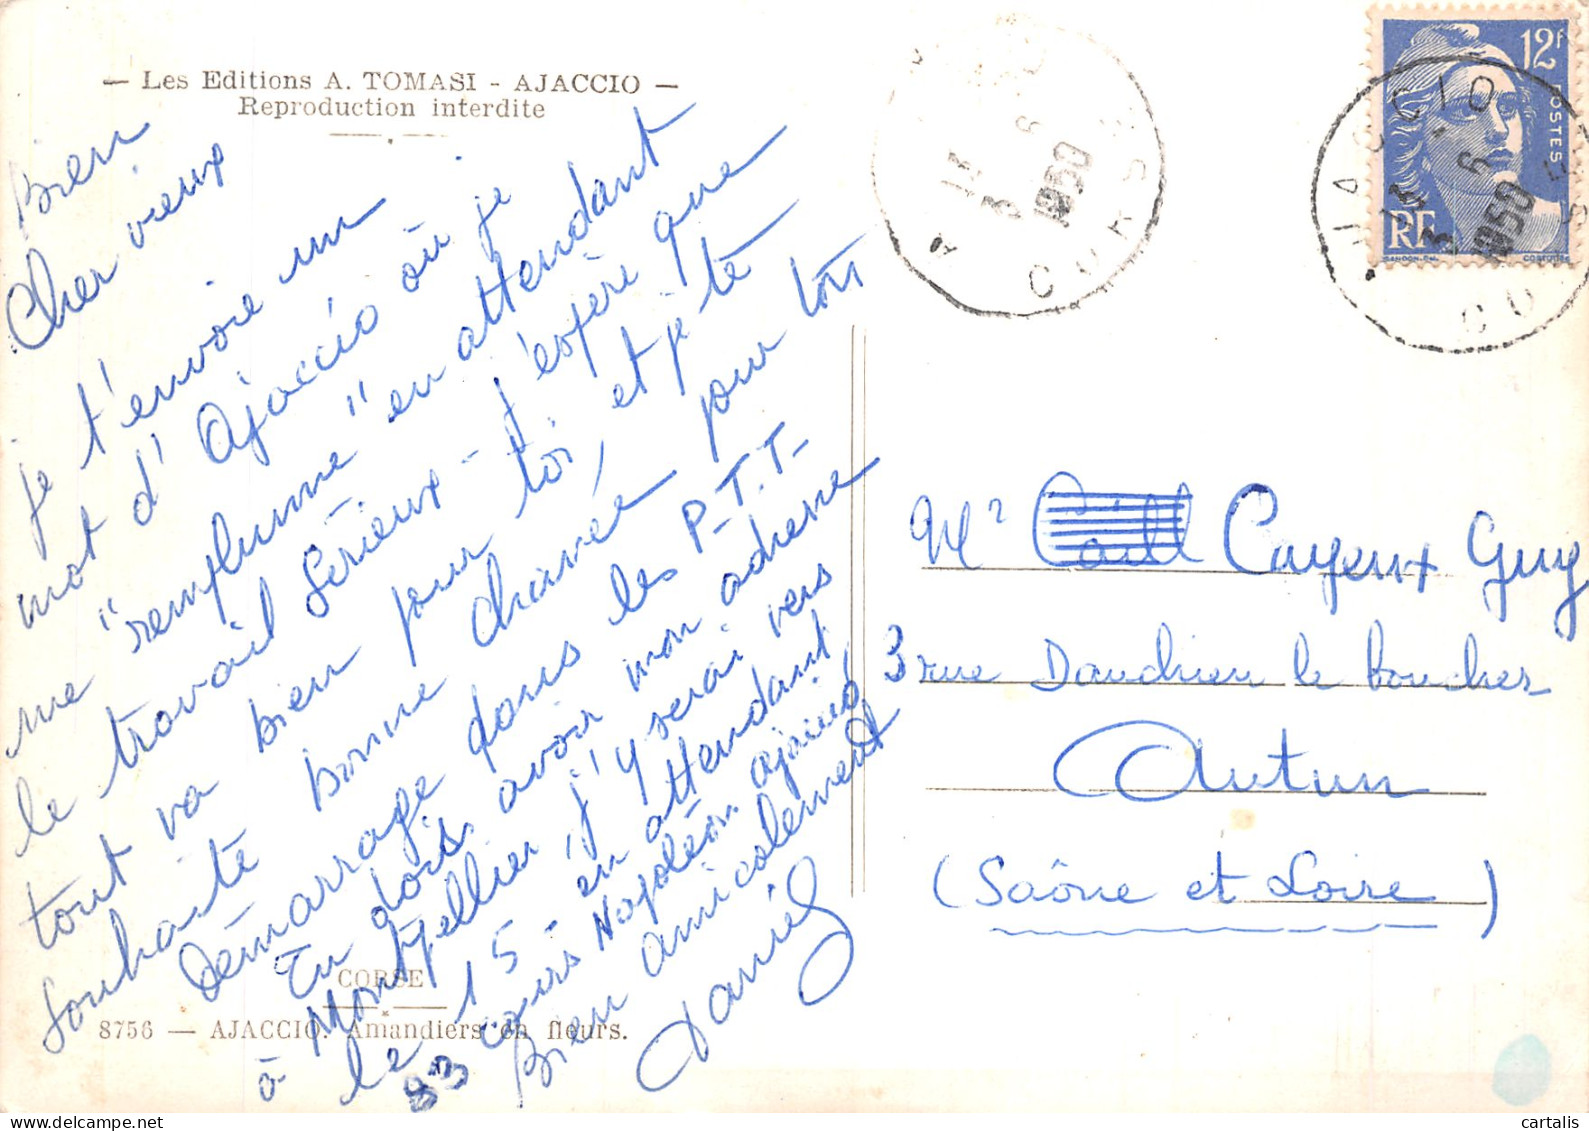 — Les Editions A. TOMASI - AJACCIO —
Reproduction interdite
Bien
Cher vieux
je t'envoie un
mot d'Ajaccio où je
me "remplume" en attendant
le travail sérieux - J'espère que
tout va bien pour toi, et je te
souhaite bonne chance pour ton
Démarrage dans les P.T.T-
Tu dois avoir mon adresse
à Montpellier, j'y serai vers
le 15 - en attendant
83 cours Napoléon ajaccio
Bien amicalement
Daniel
CORSE
8756 — AJACCIO. Amandiers en fleurs.
12f
POSTES
RF
GANDON
AJACCIO
13
3 6
1950
CORSE
A
13
3 6
1950
CORSE
Mr Cayeux Guy
3 rue Dandrien le boucher
Autun
(Saône et Loire)
cartalis